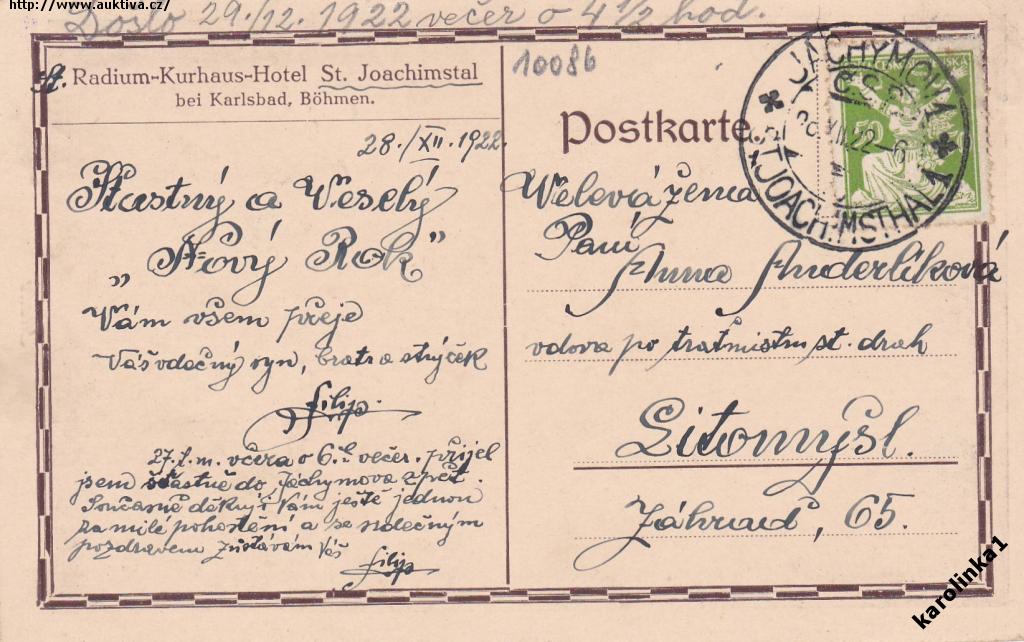 http://www.auktiva.cz/
Došlo 29./12. 1922 večer o 4 1/2 hod.
Radium-Kurhaus-Hotel St. Joachimstal
bei Karlsbad, Böhmen.
28./XII. 1922.
Šťastný a Veselý
„Nový Rok"
Vám všem přeje
Váš vděčný syn, bratr a strýček
Filip
27. t. m. včera o 6. h večer. přijel
jsem šťastně do Jáchymova zpět.
Současně děkuji Vám ještě jednou
za milé pohostění a se srdečným
pozdravem zůstávám Váš
Filip
10086
Postkarte.
JÁCHYMOV 1
ST. JOACHIMSTHAL 1
XII 22-6
Velevážená
Paní
Anna Anderlíková
vdova po tratmistru st. drah
Litomyšl.
Záhradí, 65.
karolinka1